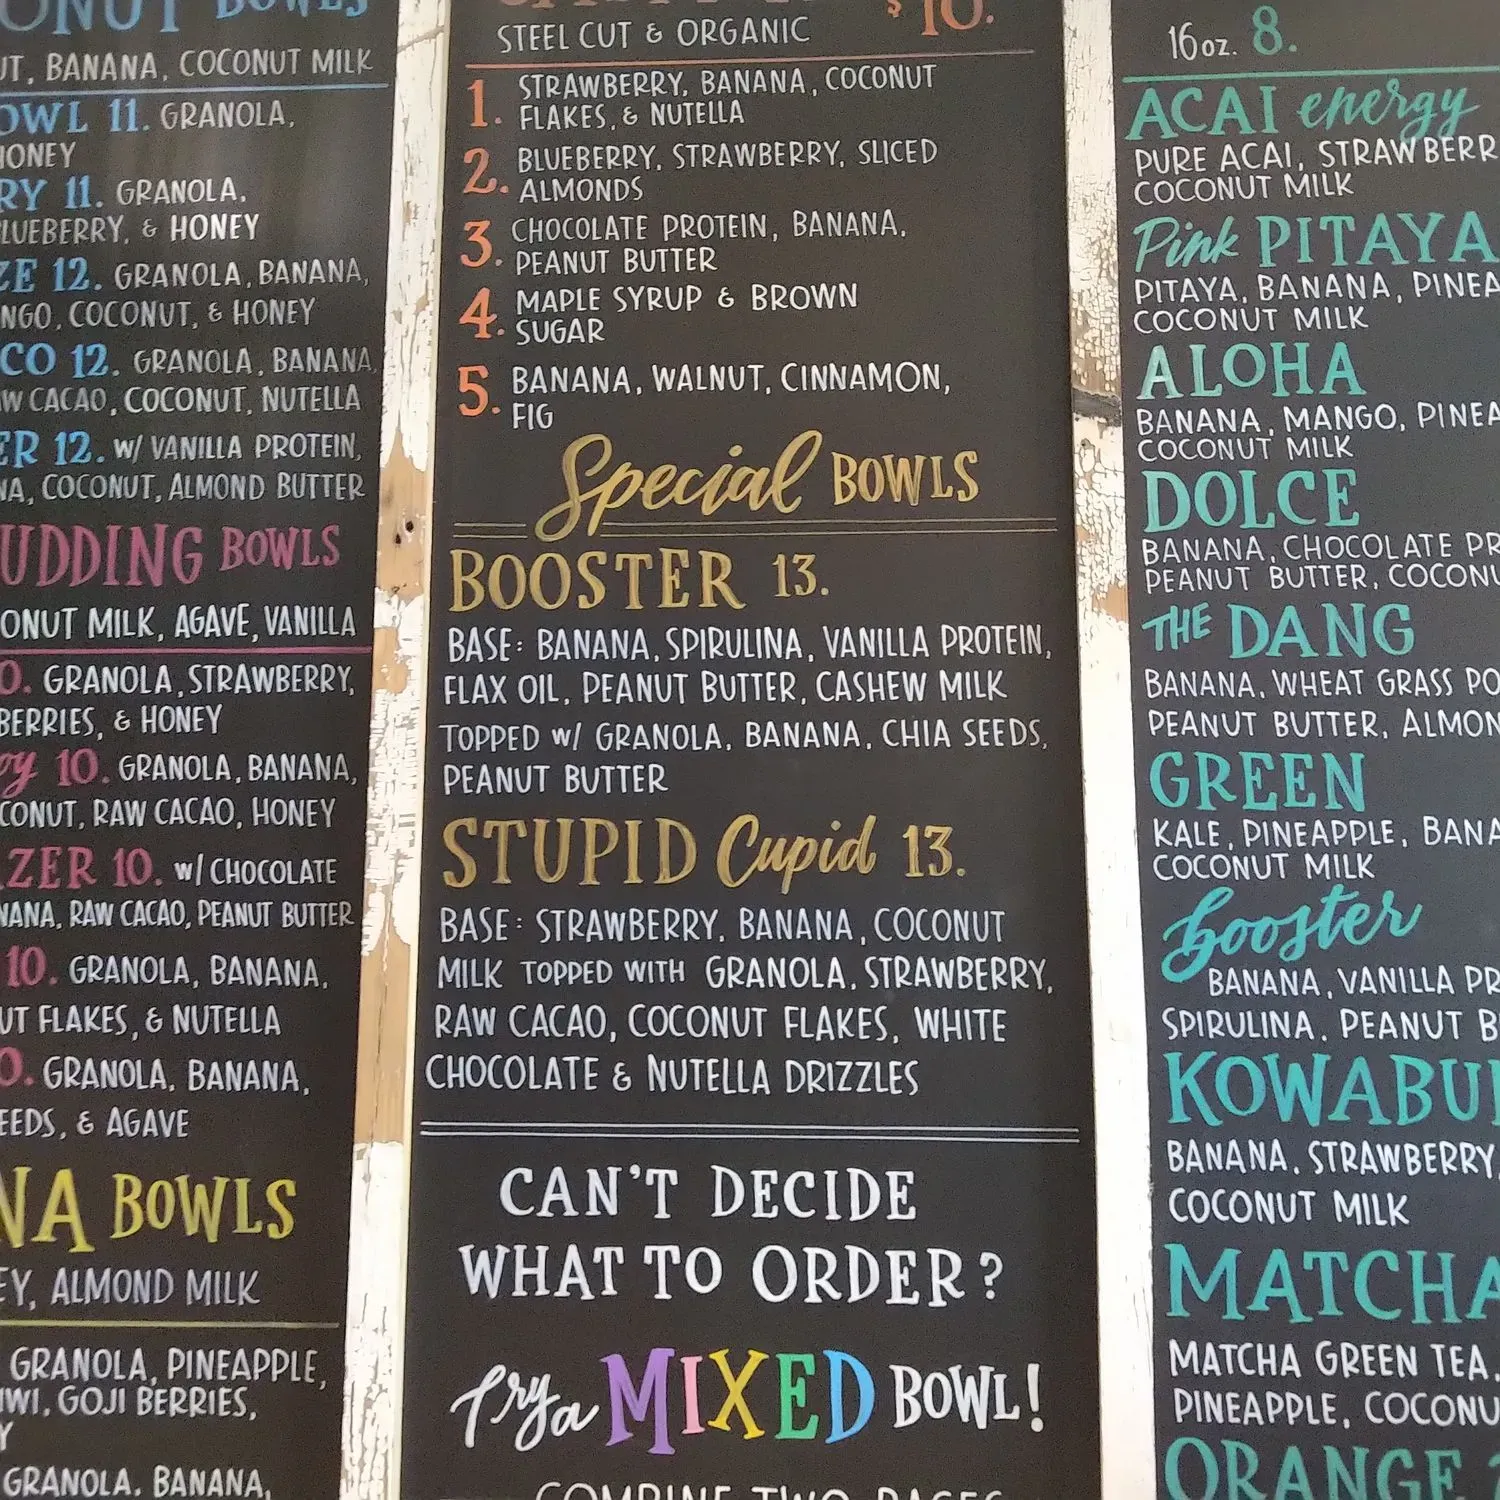 BOWLS
BANANA, COCONUT MILK
11. GRANOLA,
HONEY
11. GRANOLA,
BLUEBERRY, & HONEY
12. GRANOLA, BANANA,
COCONUT, & HONEY
12. GRANOLA, BANANA,
CACAO, COCONUT, NUTELLA
12. W/ VANILLA PROTEIN,
COCONUT, ALMOND BUTTER
UDDING BOWLS
ONUT MILK, AGAVE, VANILLA
0. GRANOLA, STRAWBERRY,
BERRIES, & HONEY
10. GRANOLA, BANANA,
CONUT, RAW CACAO, HONEY
ZER 10. W/ CHOCOLATE
NANA, RAW CACAO, PEANUT BUTTER
10. GRANOLA, BANANA,
UT FLAKES, & NUTELLA
0. GRANOLA, BANANA,
EEDS, & AGAVE
NA BOWLS
EY, ALMOND MILK
GRANOLA, PINEAPPLE,
IWI, GOJI BERRIES,
Y
GRANOLA, BANANA,
$10.
STEEL CUT & ORGANIC
1. STRAWBERRY, BANANA, COCONUT
FLAKES, & NUTELLA
2. BLUEBERRY, STRAWBERRY, SLICED
ALMONDS
3. CHOCOLATE PROTEIN, BANANA,
PEANUT BUTTER
4. MAPLE SYRUP & BROWN
SUGAR
5. BANANA, WALNUT, CINNAMON,
FIG
Special BOWLS
BOOSTER 13.
BASE: BANANA, SPIRULINA, VANILLA PROTEIN,
FLAX OIL, PEANUT BUTTER, CASHEW MILK
TOPPED W/ GRANOLA, BANANA, CHIA SEEDS,
PEANUT BUTTER
STUPID Cupid 13.
BASE: STRAWBERRY, BANANA, COCONUT
MILK TOPPED WITH GRANOLA, STRAWBERRY,
RAW CACAO, COCONUT FLAKES, WHITE
CHOCOLATE & NUTELLA DRIZZLES
CAN'T DECIDE
WHAT TO ORDER?
Try a MIXED BOWL!
COMBINE TWO BASES
16 oz. 8.
ACAI energy
PURE ACAI, STRAWBERR
COCONUT MILK
Pink PITAYA
PITAYA, BANANA, PINEA
COCONUT MILK
ALOHA
BANANA, MANGO, PINEA
COCONUT MILK
DOLCE
BANANA, CHOCOLATE PR
PEANUT BUTTER, COCONU
THE DANG
BANANA, WHEAT GRASS PO
PEANUT BUTTER, ALMON
GREEN
KALE, PINEAPPLE, BANA
COCONUT MILK
booster
BANANA, VANILLA PR
SPIRULINA, PEANUT B
KOWABU
BANANA, STRAWBERRY,
COCONUT MILK
MATCHA
MATCHA GREEN TEA,
PINEAPPLE, COCONU
ORANGE